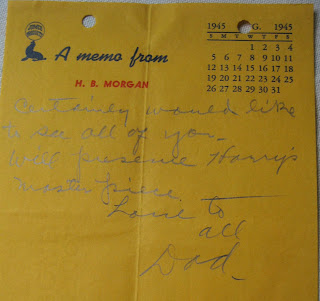 1945 G. 1945
S M T W T F S
1 2 3 4
5 6 7 8 9 10 11
12 13 14 15 16 17 18
19 20 21 22 23 24 25
26 27 28 29 30 31
A memo from
H. B. MORGAN
Certainly would like
to see all of you_
Will preserve Harry's
master piece.
Love to
all
Dad_